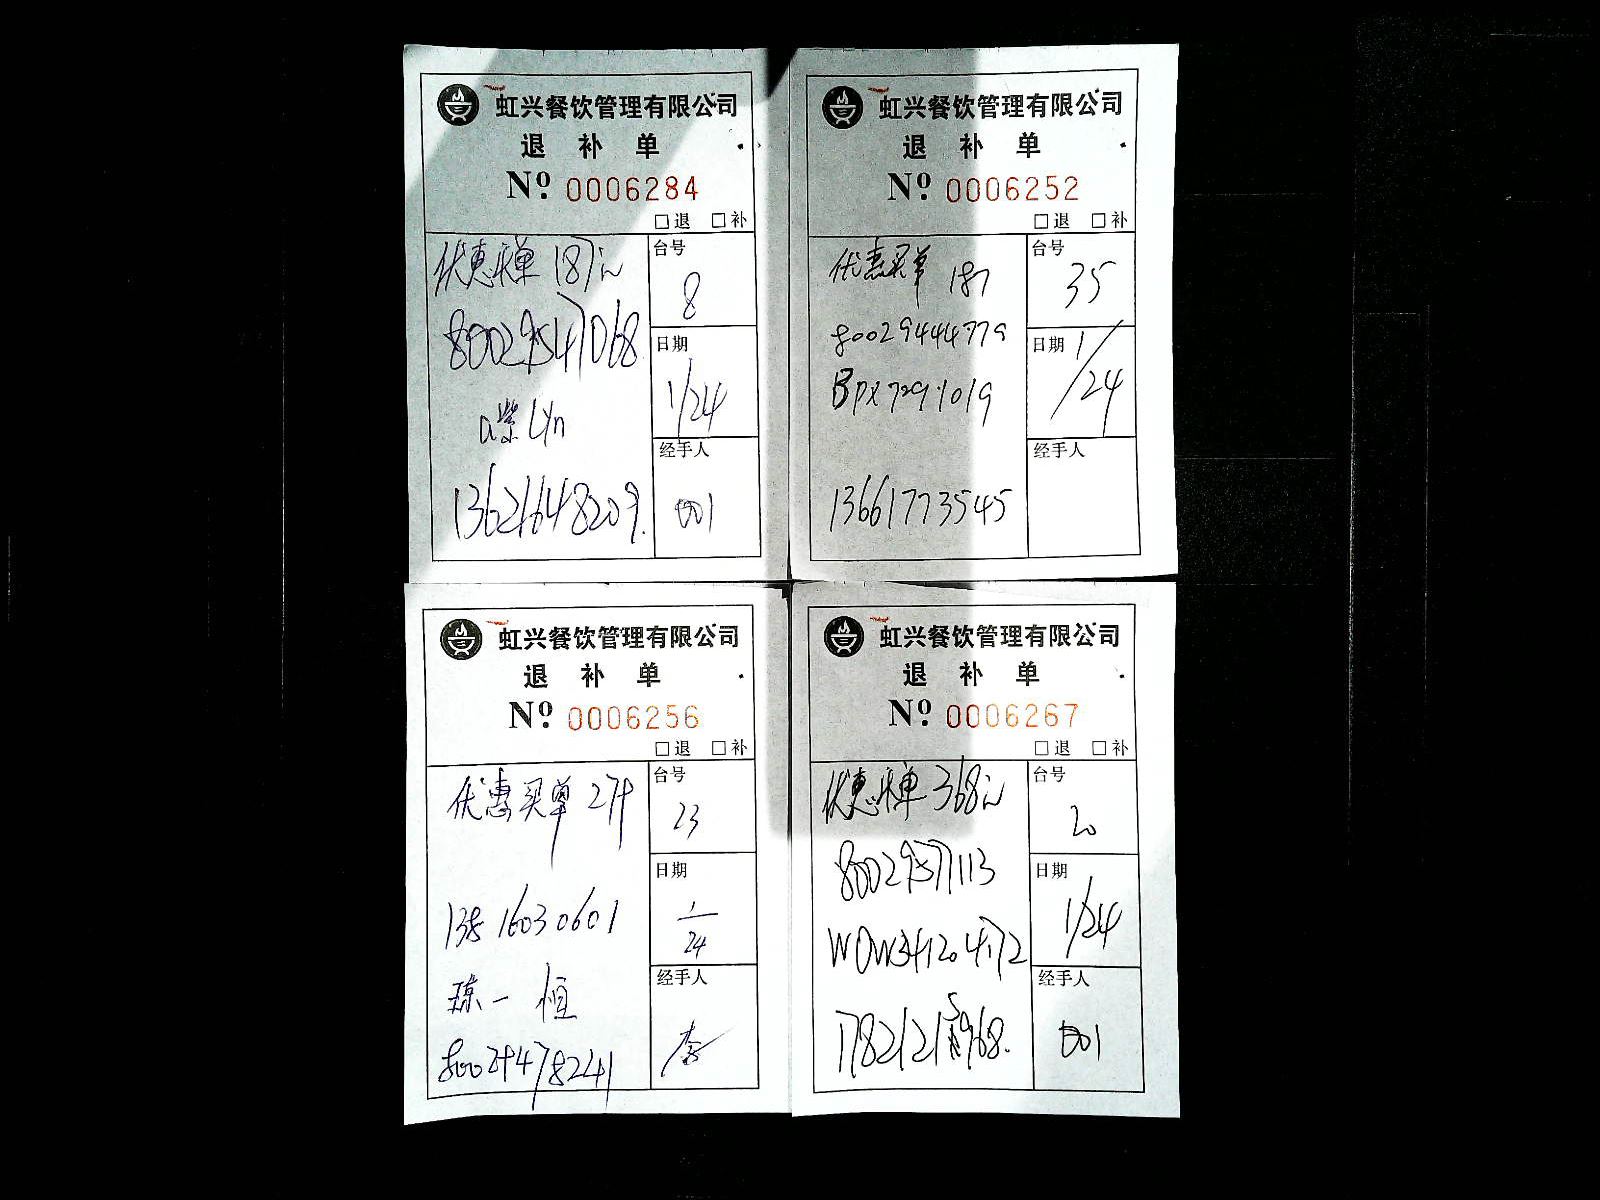 虹兴餐饮管理有限公司
退 补 单
Nº 0006284
□退 □补
优惠买单 187元
80029547068
a紫Lyn
13621648209.
台号
8
日期
1/24
经手人
001
虹兴餐饮管理有限公司
退 补 单
Nº 0006252
□退 □补
优惠买单 187
80029444779
BPX7291019
13661773545
台号
35
日期
1/24
经手人
虹兴餐饮管理有限公司
退 补 单
Nº 0006256
□退 □补
优惠买单
13816030601
一恒
台号
23
日期
1/24
经手人
李
虹兴餐饮管理有限公司
退 补 单
Nº 0006267
□退 □补
优惠买单 368元
80029577113
WOW341204172
台号
20
日期
1/24
经手人
001